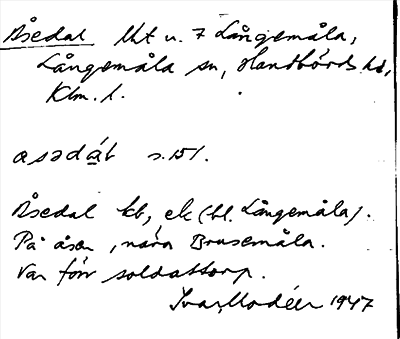 Åsedal lht u. 7 Långemåla,
Långemåla sn, Handbörds hd,
Klm. l.
asədát s. 151.
Åsedal kb, ek (bl. Långemåla).
På åsen, nära Brusemåla.
Var förr soldattorp.
Ivar Modéer 1947